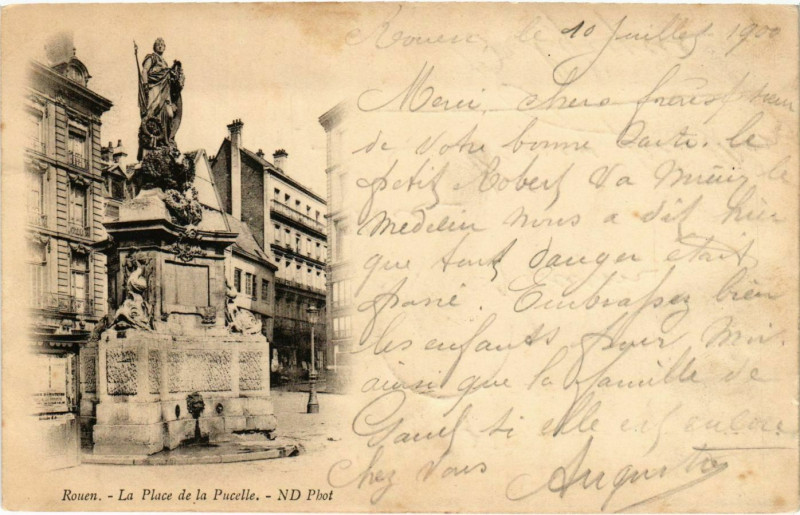 Rouen, le 10 Juillet 1900
Merci, chers frères
de votre bonne Carte. le
petit Robert va mieux le
Medecin nous a dit hier
que tout danger était
passé. Embrassez bien
les enfants pour moi.
ainsi que la famille de
si elle est encore
chez vous Augustine
Rouen. - La Place de la Pucelle. - ND Phot